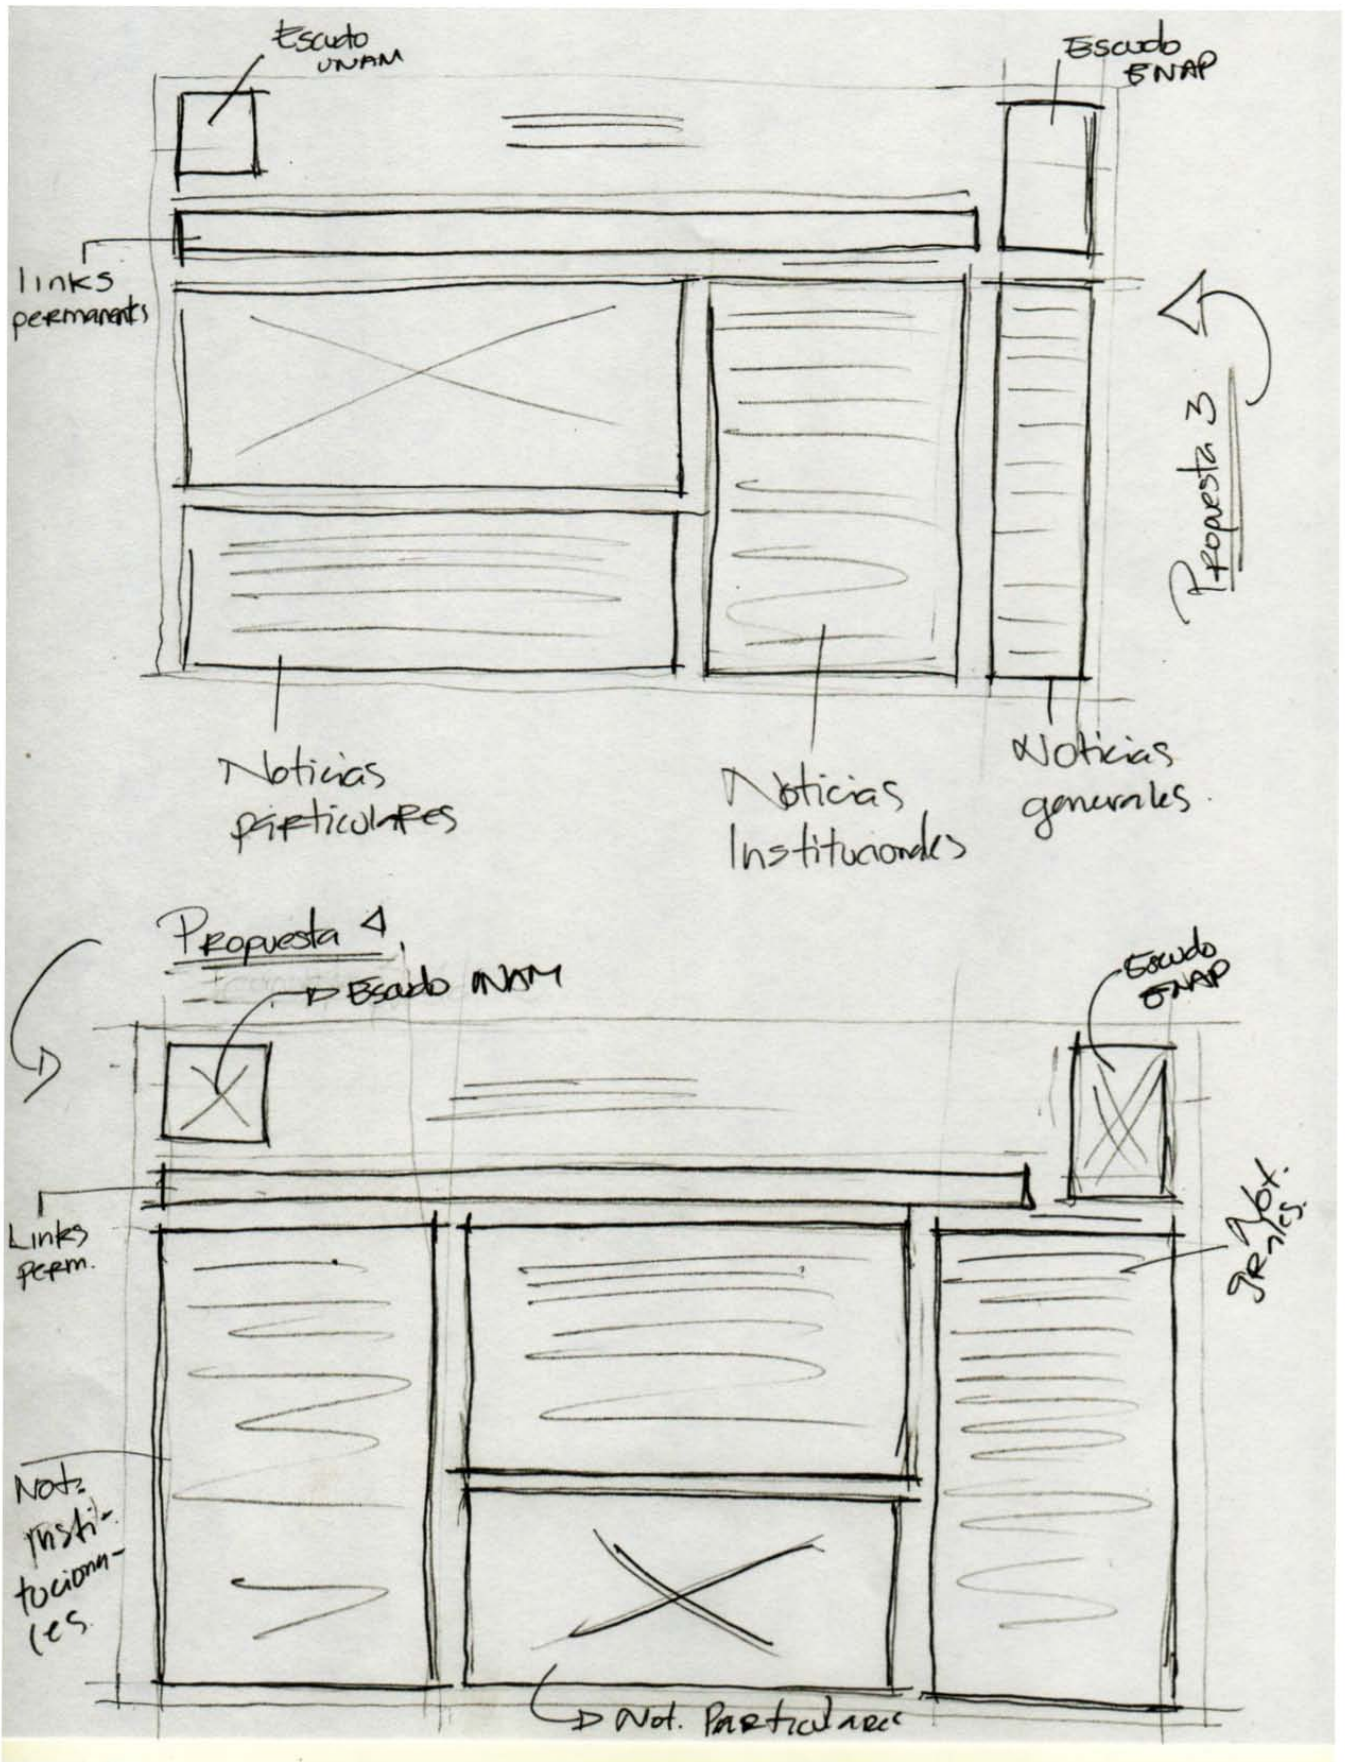 Escudo
UNAM
Escudo
ENAP
links
permanents
Propuesta 3
Noticias
particulares
Noticias
Institucionales
Noticias
generales.
Propuesta 4
Escudo UNAM
Escudo
ENAP
Links
perm.
Not.
grales.
Not.
insti-
tuciona-
les.
Not. Particulares